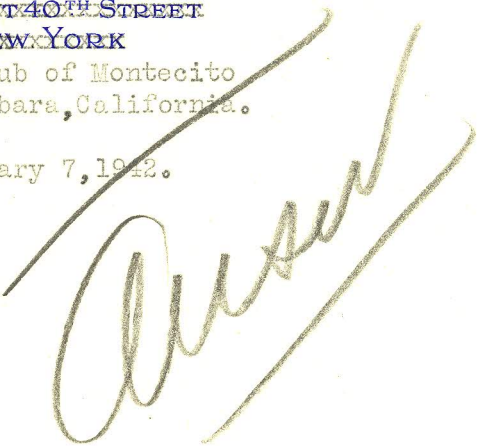 T 40TH STREET
W YORK
ub of Montecito
bara,California.
ary 7,1942.